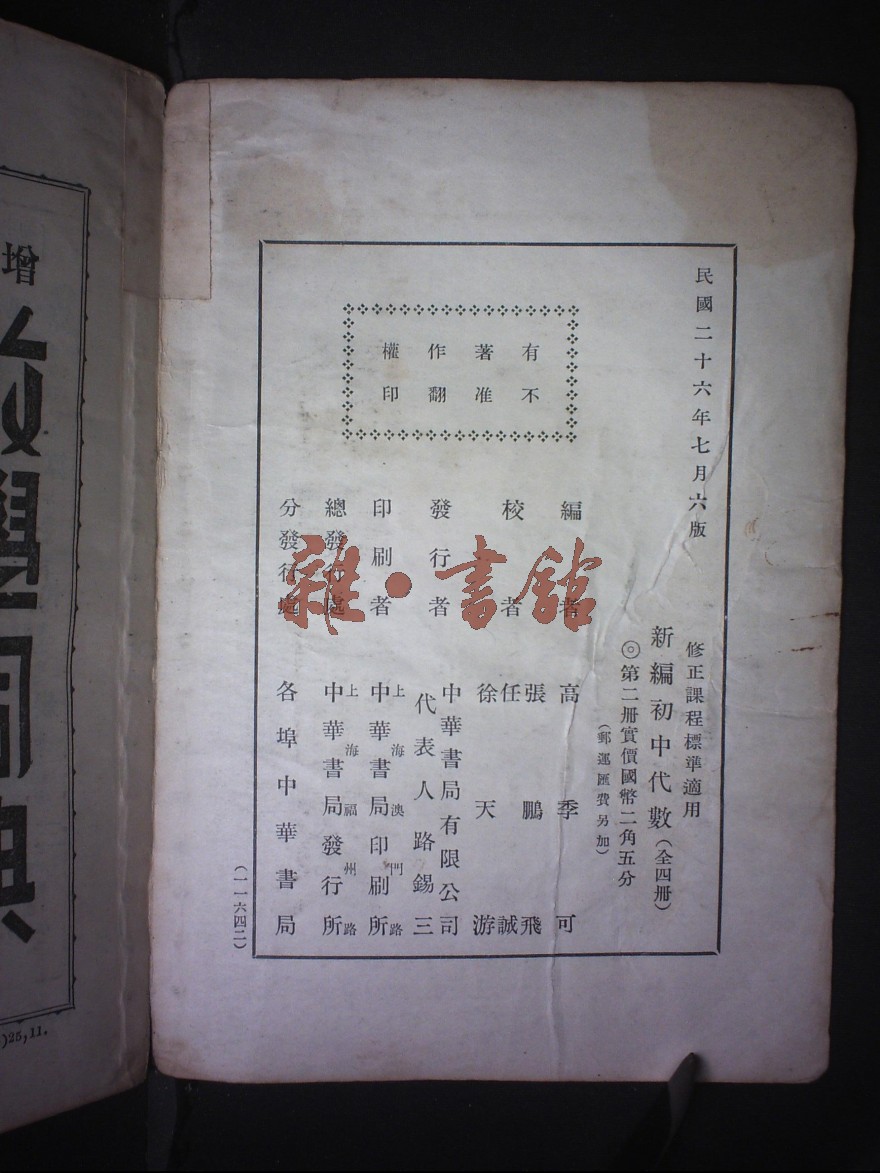 民國二十六年七月六版
修正課程標準適用
新編初中代數（全四册）
◎第二册實價國幣二角五分
（郵運匯費另加）
有著作權
不准翻印
編者 高季可
校者 張鵬飛
任誠
徐天游
發行者 中華書局有限公司
代表人路錫三
印刷者 上海澳門路
中華書局印刷所
總發行處 上海福州路
中華書局發行所
分發行處 各埠中華書局
（一一六四二）
雜·書館
增
數學詞典
)25,11.